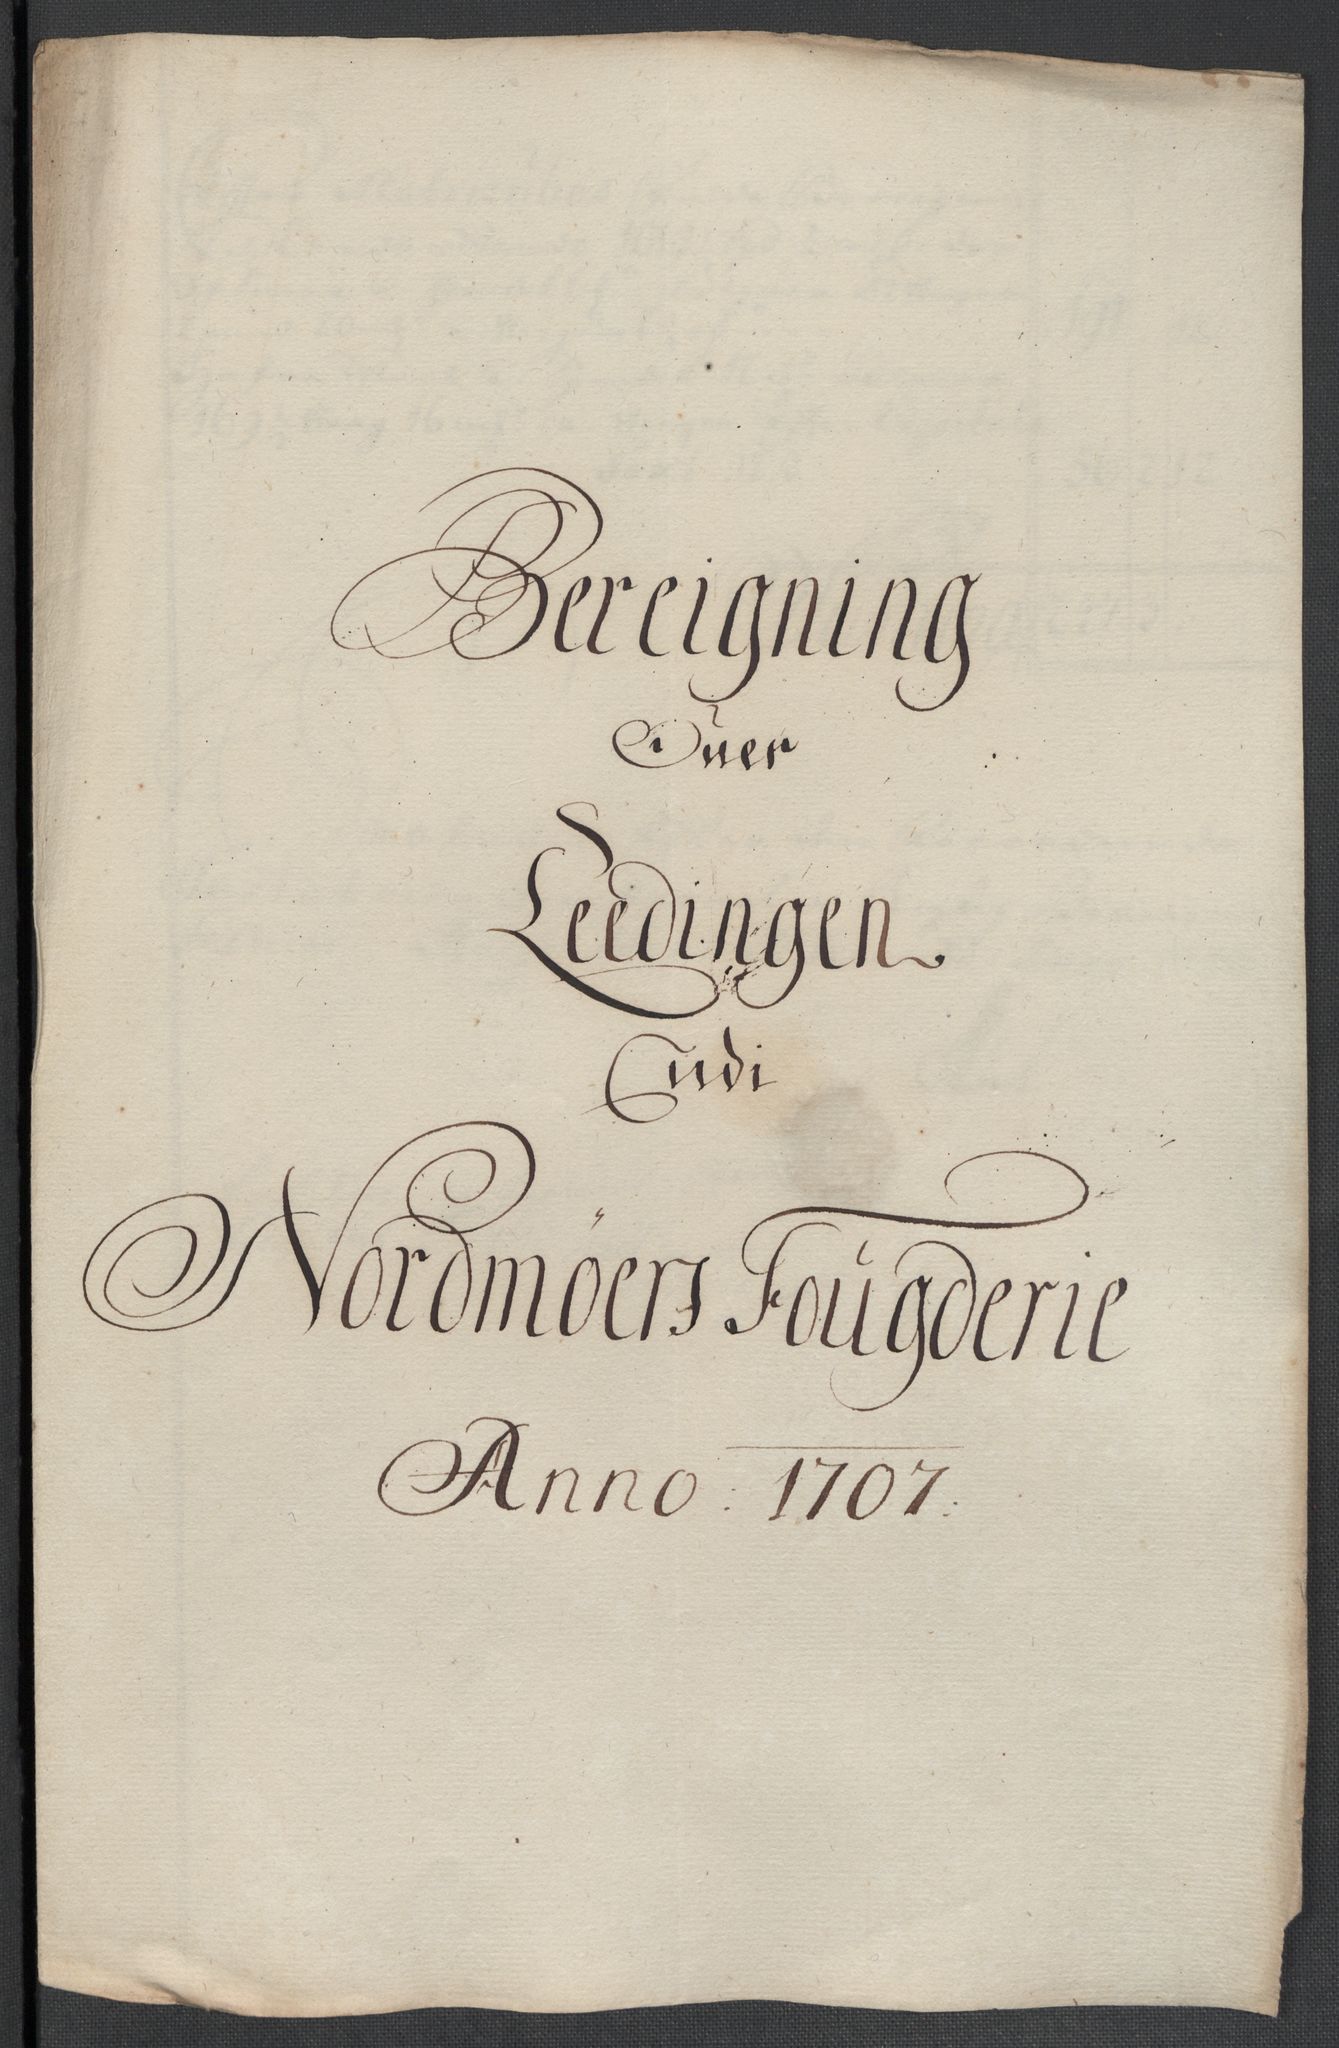 Bereigning
Ouer
Leedingen
udi
Nordmøers Fougderie
Anno: 1707.